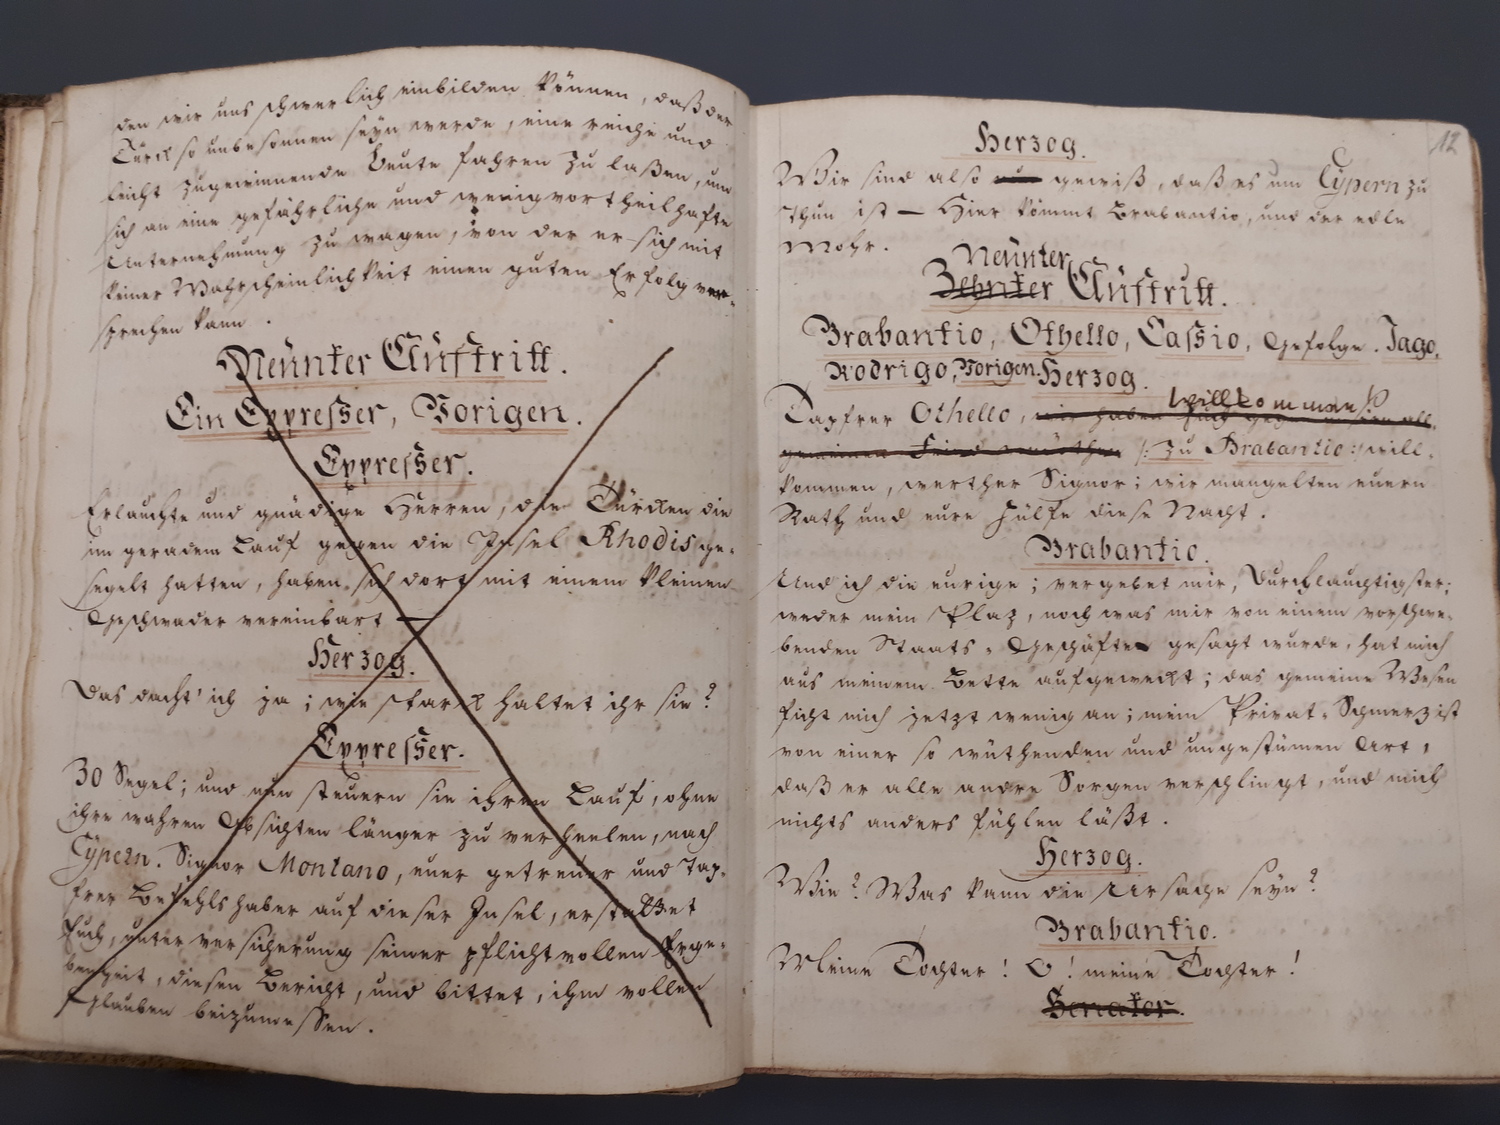 den wir uns schwerlich einbilden können, daß der
Türck so unbesonnen seyn werde, eine reiche und
leicht zugewinnende Beute fahren zu laßen, um
sich an eine gefährliche und wenig vortheilhafte
Unternehmung zu wagen, von der er sich mit
keiner Wahrscheinlichkeit einen guten Erfolg ver-
sprechen kann.
Neünter Aüftritt.
Ein Expresser, Vorigen.
Expresser.
Erlauchte und gnädige Herren, die Türcken die
im geradem Lauf gegen die Insel Rhodis ge-
segelt hatten, haben sich dort mit einem kleinen
Geschwader vereinbart —
Herzog.
Das dacht' ich ja; wie starck haltet ihr sie?
Expresser.
30 Segel; und nun steuern sie ihren Lauf, ohne
ihre wahren Absichten länger zu verheelen, nach
Cypern. Signor Montano, euer getreuer und tap-
frer Befehlshaber auf dieser Insel, erstattet
Euch, unter versicherung seiner pflichtvollen Erge-
benheit, diesen Bericht, und bittet, ihm vollen
Glauben beizumessen.
12
Herzog.
Wir sind also nun gewiß, daß es um Cypern zu
thun ist — Hier kömmt Brabantio, und der edle
Mohr.
Neünter
Zehnter Aüftritt.
Brabantio, Othello, Cassio, Gefolge. Jago,
Rodrigo, Vorigen. Herzog.
willkommen!
Tapfrer Othello, wir haben Euch gegen den all-
gemeinen Feind /: zu Brabantio :/ will-
kommen, werther Signor; wir mangelten euern
Rath und eure Hülfe diese Nacht.
Brabantio.
Und ich die eurige; vergebet mir, Durchlauchtigster;
weder mein Plaz, noch was mir von einem vorschwe-
benden Staats-Geschäfte gesagt wurde, hat mich
aus meinem Bette aufgeweckt; das gemeine Wesen
ficht mich jetzt wenig an; mein Privat-Schmerz ist
von einer so wüthenden und ungestümen Art,
daß er alle andre Sorgen verschlingt, und mich
nichts anders fühlen läßt.
Herzog.
Wie? Was kann die Ursache seyn?
Brabantio.
Meine Tochter! O! meine Tochter!
Senator.